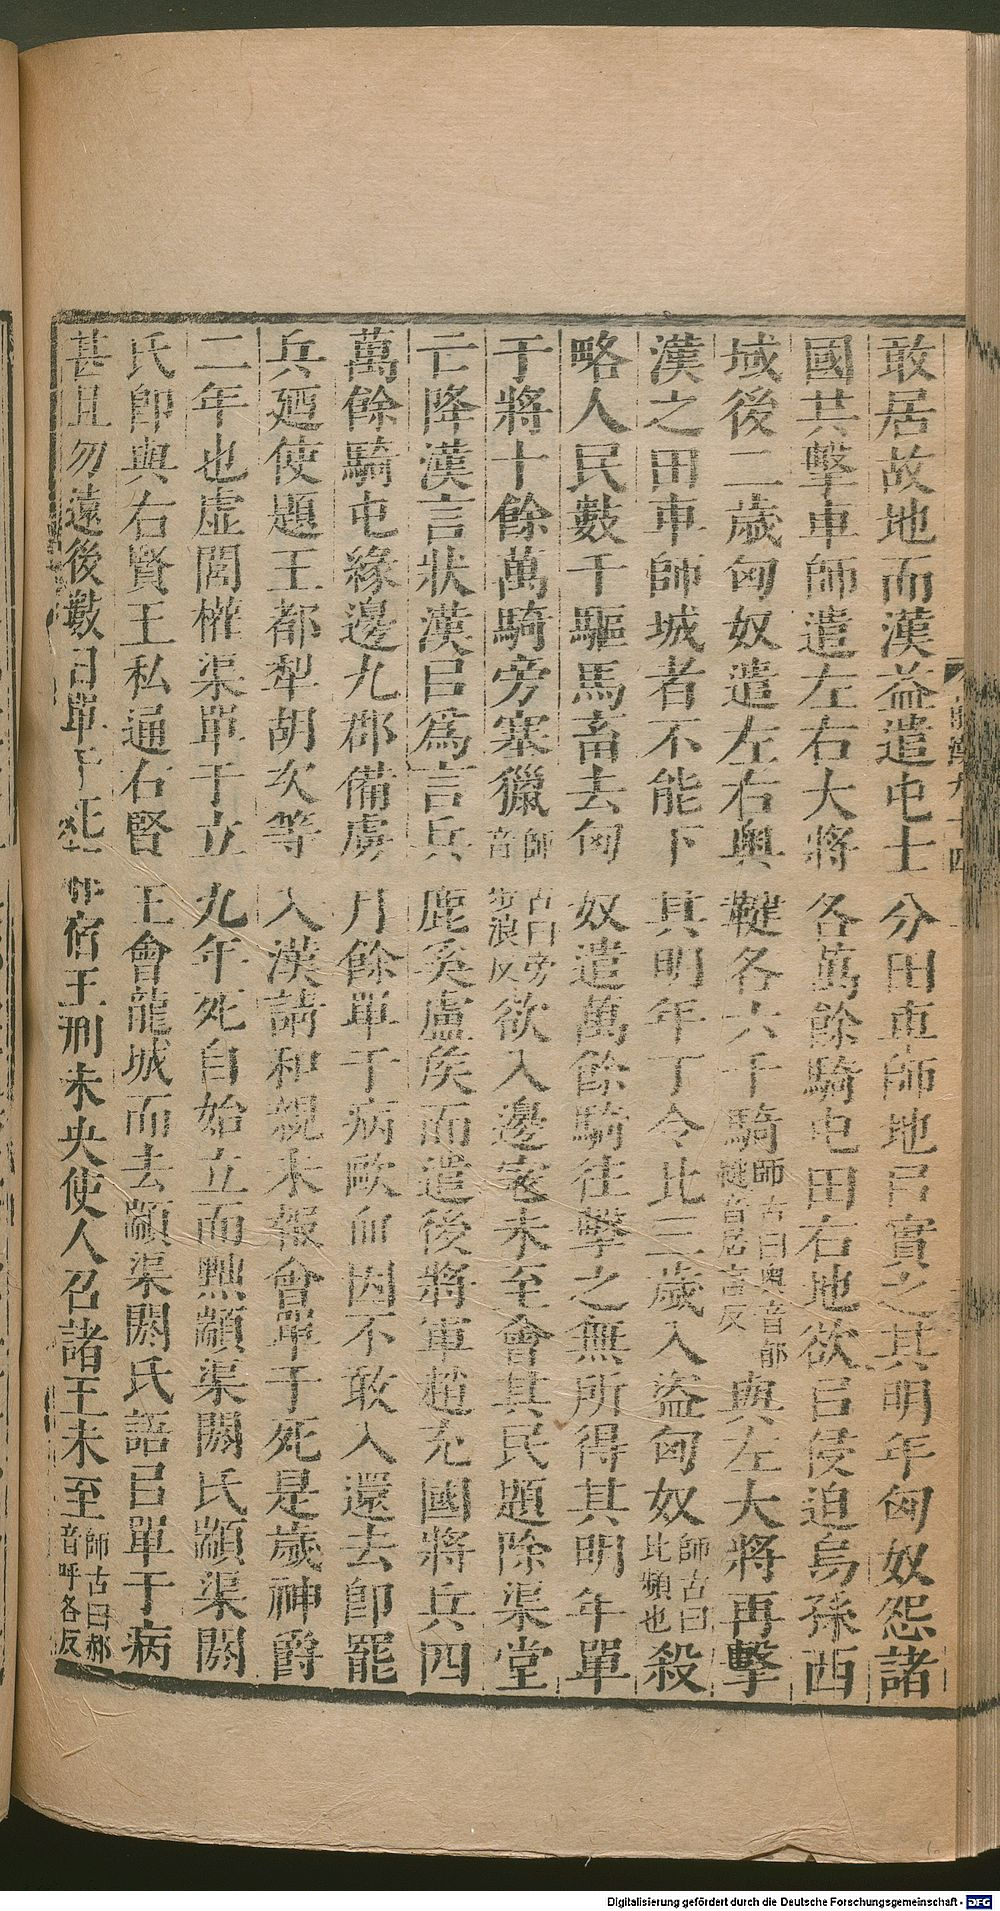 敢居故地而漢益遣屯士分田車師地㠯實之其明年匈奴怨諸
國共擊車師遣左右大將各萬餘騎屯田右地欲㠯侵迫烏孫西
域後二歲匈奴遣左右奧鞬各六千騎師古曰奧音郁鞬音居言反與左大將再擊
漢之田車師城者不能下其明年丁令比三歲入盜匈奴師古曰比頻也殺
略人民數千驅馬畜去匈奴遣萬餘騎往擊之無所得其明年單
于將十餘萬騎旁塞獵師古曰旁音步浪反欲入邊寇未至會其民題除渠堂
亡降漢言狀漢㠯爲言兵鹿奚盧侯而遣後將軍趙充國將兵四
萬餘騎屯緣邊九郡備虜月餘單于病歐血因不敢入還去卽罷
兵廼使題王都犁胡次等入漢請和親未報會單于死是歲神爵
二年也虛閭權渠單于立九年死自始立而黜顓渠閼氏顓渠閼
氏卽與右賢王私通右賢王會龍城而去顓渠閼氏語㠯單于病
甚且勿遠後數日單于死郝宿王刑未央使人召諸王未至師古曰郝音呼各反
前漢九十四
Digitalisierung gefördert durch die Deutsche Forschungsgemeinschaft - DFG